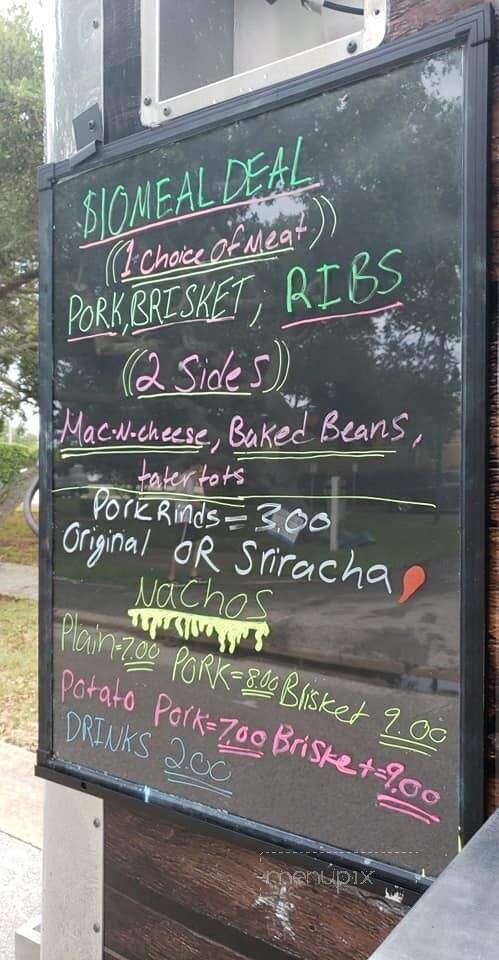 $10MEAL DEAL
((1 choice of meat))
PORK, BRISKET, RIBS
((2 Sides))
Mac-N-cheese, Baked Beans,
tater tots
Pork Rinds = 3.00
Original OR Sriracha
Nachos
Plain=7.00 PORK=8.00 Brisket 9.00
Potato Pork=7.00 Brisket=9.00
DRINKS 2.00
menupix